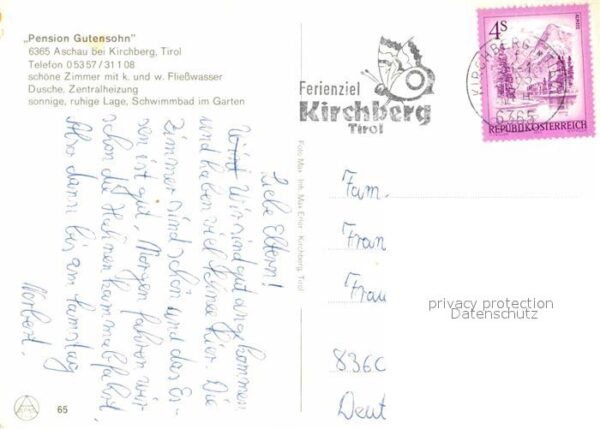 „Pension Gutensohn"
6365 Aschau bei Kirchberg, Tirol
Telefon 05357/31108
schöne Zimmer mit k. und w. Fließwasser
Dusche, Zentralheizung
sonnige, ruhige Lage, Schwimmbad im Garten
Ferienziel
Kirchberg
Tirol
KIRCHBERG
6365
4S
REPUBLIK ÖSTERREICH
Liebe Eltern!
Wir sind gut angekommen
und haben viel Schnee hier. Die
Zimmer sind schön und das Es-
sen ist gut. Morgen fahren wir
schon die Hahnenkammabfahrt.
Also dann bis am Samstag
Norbert.
Foto Max Inh. Max Erler, Kirchberg, Tirol
65
Fam.
Fran
Frau
836C
Deut
privacy protection
Datenschutz